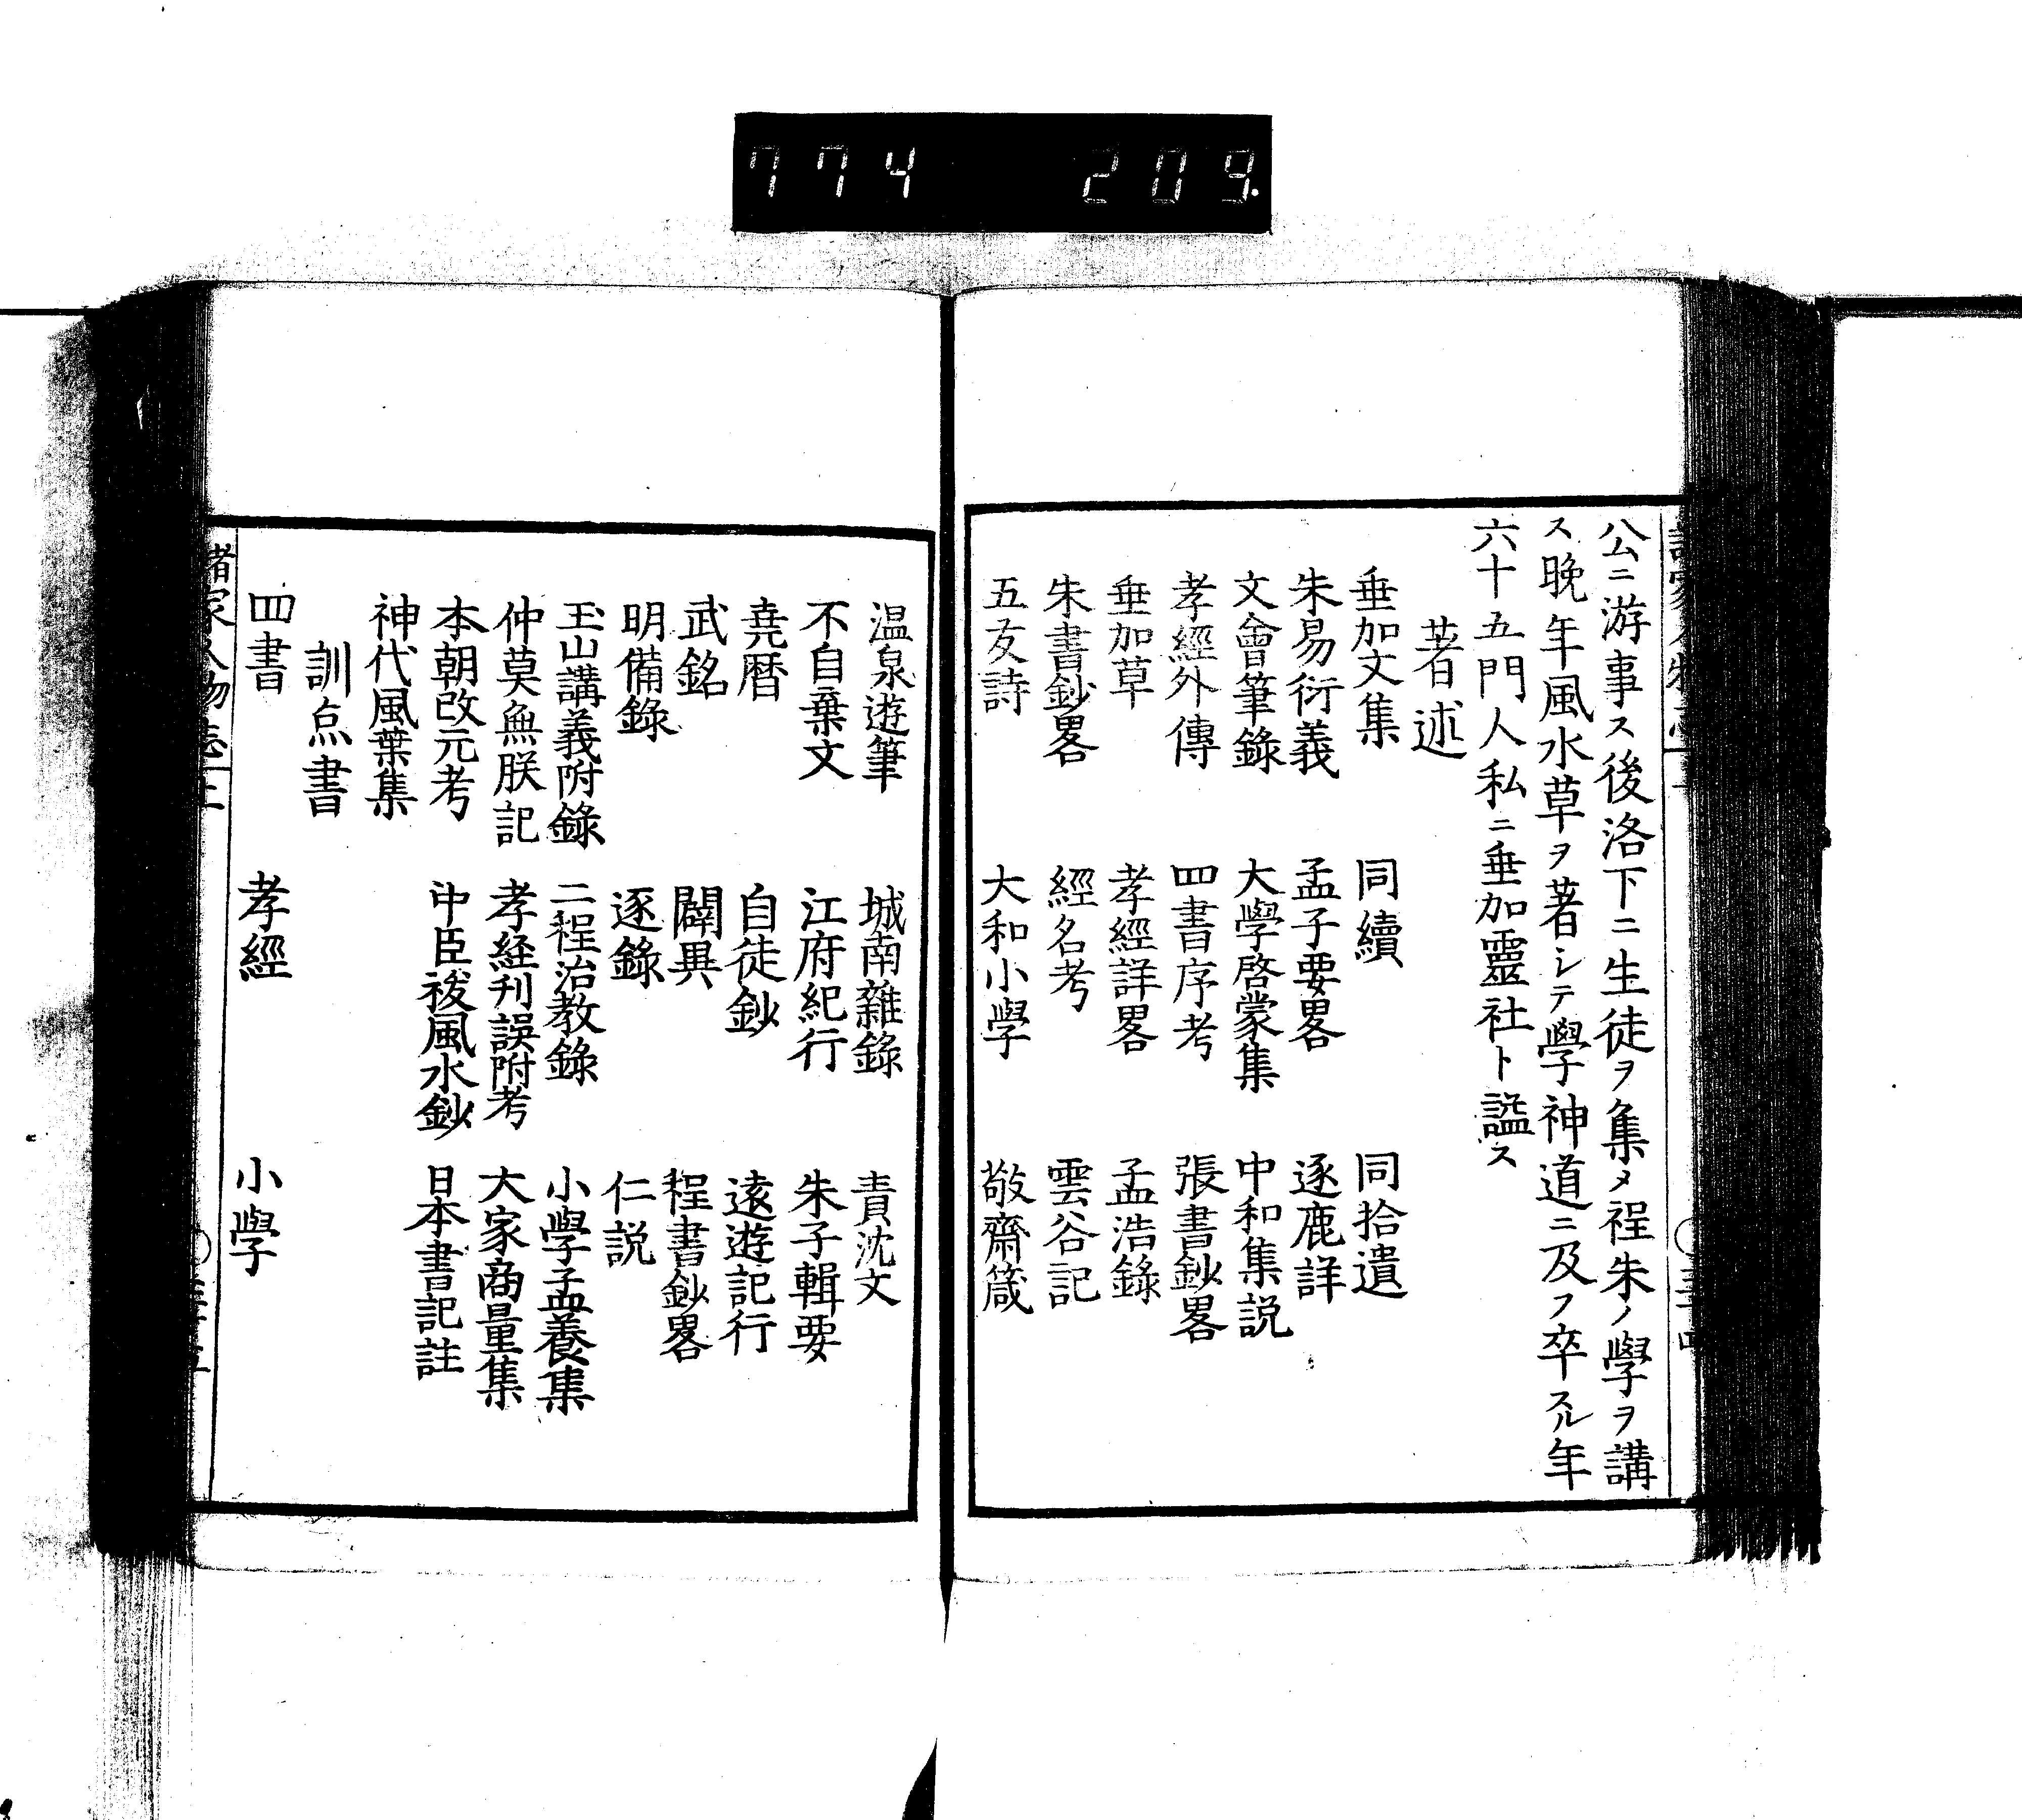 774 209.
公ニ游事ス後洛下ニ生徒ヲ集メ程朱ノ學ヲ講
ス晩年風水草ヲ著シテ學神道ニ及フ卒スル年
六十五門人私ニ垂加靈社ト謚ス
著述
垂加文集 同續 同拾遺
朱易衍義 孟子要畧 逐鹿詳
文會筆錄 大學啓蒙集 中和集説
孝經外傳 四書序考 張書鈔畧
垂加草 孝經詳畧 孟浩錄
朱書鈔畧 經名考 雲谷記
五友詩 大和小學 敬齋箴
温泉遊筆 城南雜錄 責沈文
不自棄文 江府紀行 朱子輯要
堯暦 自徒鈔 遠遊記行
武銘 闢異 程書鈔畧
明備錄 逐錄 仁説
玉山講義附錄 二程治教錄 小學孟養集
仲莫無朕記 孝経刊誤附考 大家商量集
本朝改元考 中臣祓風水鈔 日本書記註
神代風葉集
訓点書
四書 孝經 小學
諸家人物志 上